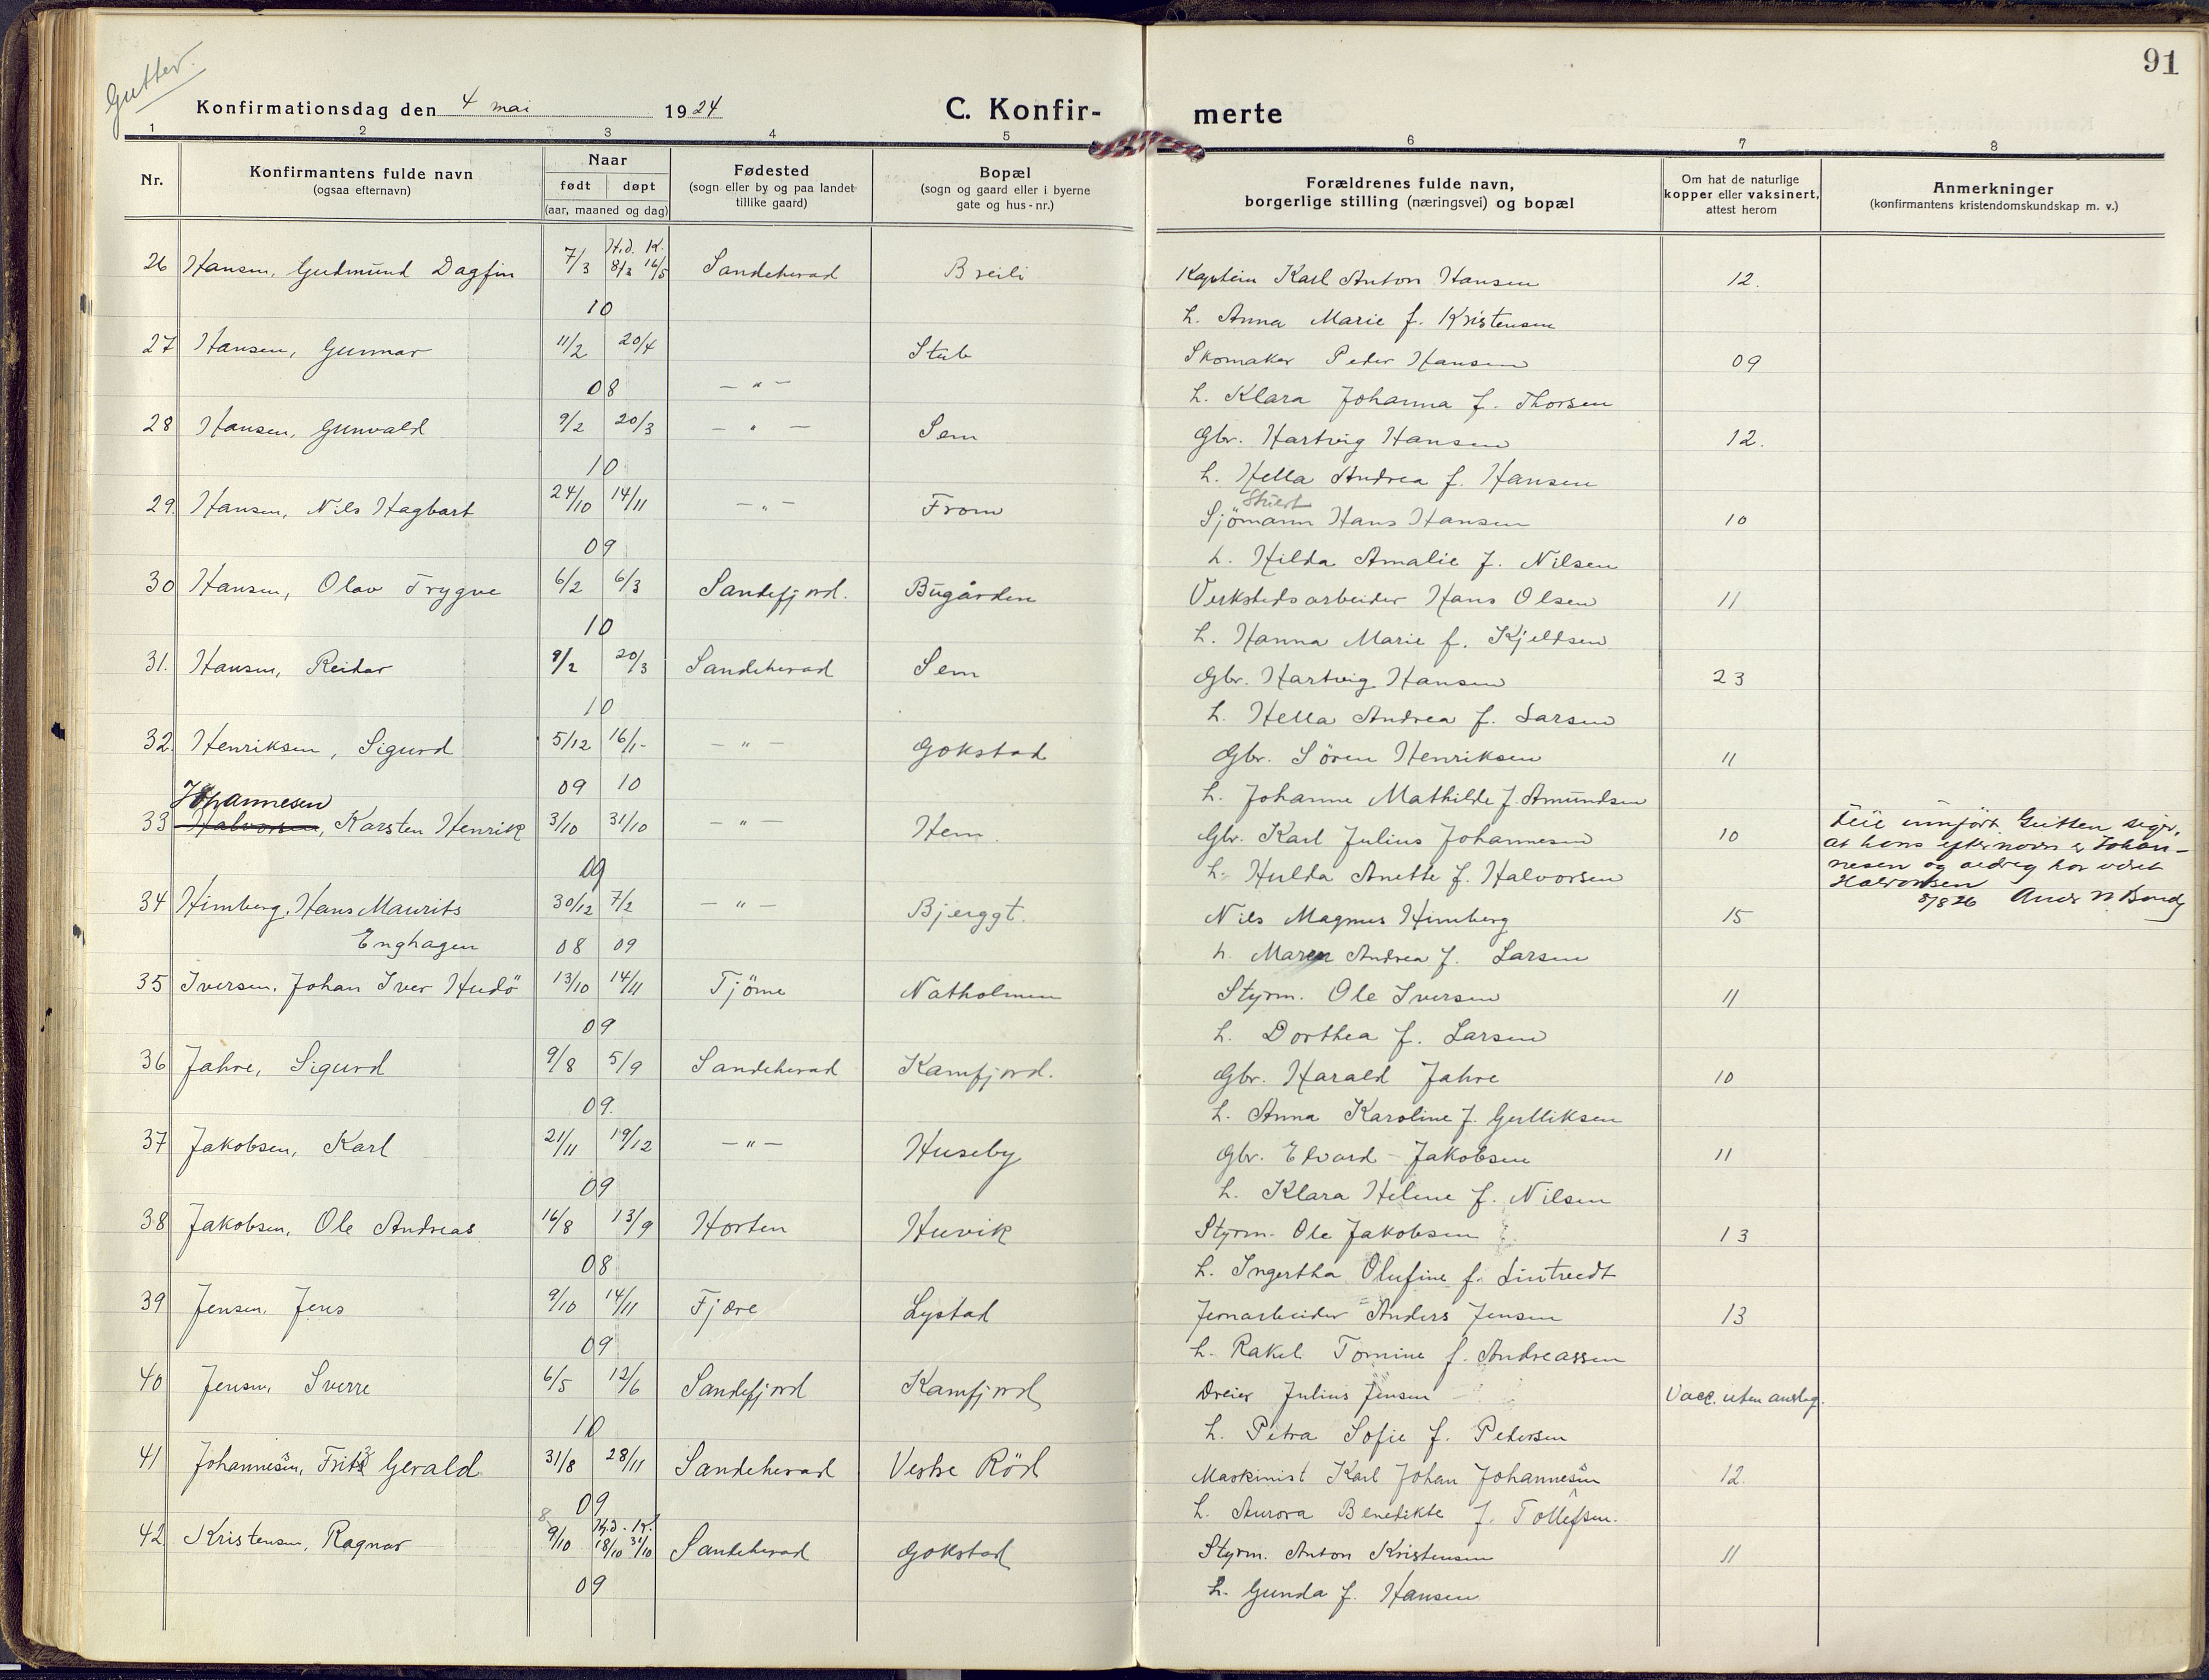 Gutter.
91
Konfirmationsdag den 4 mai 1924
C. Konfir-
merte
1 2 3 4 5 6 7 8
Nr.
Konfirmantens fulde navn
(ogsaa efternavn)
Naar
født døpt
(aar, maaned og dag)
Fødested
(sogn eller by og paa landet
tillike gaard)
Bopæl
(sogn og gaard eller i byerne
gate og hus-nr.)
Forældrenes fulde navn,
borgerlige stilling (næringsvei) og bopæl
Om hat de naturlige
kopper eller vaksinert,
attest herom
Anmerkninger
(konfirmantens kristendomskundskap m. v.)
H.d. K.
26 Hansen, Gudmund Dagfin 7/3 8/3 16/5 Sandeherad Breili Kaptein Karl Anton Hansen 12.
10 h. Anna Marie f. Kristensen
27 Hansen, Gunnar 11/2 20/4 Stub Skomaker Peder Hansen 09
08 – " – h. Klara Johanna f. Thorsen
28 Hansen, Gunvald 9/2 20/3 – " – Sem Gbr. Hartvig Hansen 12.
10 h. Hella Andrea f. Hansen
Stuert
29. Hansen, Nils Hagbart 24/10 14/11 – " – From Sjömann Hans Hansen 10
09 h. Hilda Amalie f. Nilsen
30 Hansen, Olav Trygve 6/2 6/3 Sandefjord. Bugården Verkstedsarbeider Hans Olsen 11
10 h. Hanna Marie f. Kjeldsen
31. Hansen, Reidar 9/2 20/3 Sandeherad Sem Gbr. Hartvig Hansen 23
10 h. Hella Andrea f. Larsen
32. Henriksen, Sigurd 5/12 16/1- – " – Gokstad Gbr. Sören Henriksen 11
09 10 h. Johanne Mathilde f. Amundsen
Johannesen
33 Halvorsen, Karsten Henrik 3/10 31/10 – " – Hem Gbr. Karl Julius Johannesen 10
09 h. Hulda Anette f. Halvorsen
Feil innført. Gutten siger,
at hans efternavn er Johan-
nesen og aldrig har været
Halvorsen
8/8 26
34 Himberg, Hans Maurits 30/12 7/2 – " – Bjerggt. Nils Magnus Himberg 15
Enghagen 08 09 h. Maren Andrea f. Larsen
35 Iversen, Johan Iver Hudö 13/10 14/11 Tjöme Natholmen Styrm. Ole Iversen 11
09 h. Dorthea f. Larsen
36 Jahre, Sigurd 9/8 5/9 Sandeherad Kamfjord. Gbr. Harald Jahre 10
09. h. Anna Karoline f. Gulliksen
37 Jakobsen, Karl 21/11 19/12 – " – Huseby Gbr. Edvard Jakobsen 11
09 h. Klara Helene f. Nilsen
38 Jakobsen, Ole Andreas 16/8 13/9 Horten Huvik Styrm. Ole Jakobsen 13
08 h. Ingertha Olufine f. Lintvedt
39 Jensen, Jens 9/10 14/11 Fjære Lystad Jernarbeider Anders Jensen 13
09 h. Rakel Tomine f. Andreassen
40 Jensen, Sverre 6/5 12/6 Sandefjord Kamfjord Dreier Julius Jensen Vacc. uten anslag.
10 h. Petra Sofie f. Petersen
41 Johannesen, Fritz Gerald 31/8 28/11 Sandeherad Vestre Röd Maskinist Karl Johan Johannesen 12.
09 h. Aurora Benedikte f. Tollefsen.
8 Hj.d. K.
42 Kristensen, Ragnar 9/10 18/10 31/10 Sandeherad Gokstad Styrm. Anton Kristensen 11
09 h. Gunda f. Hansen